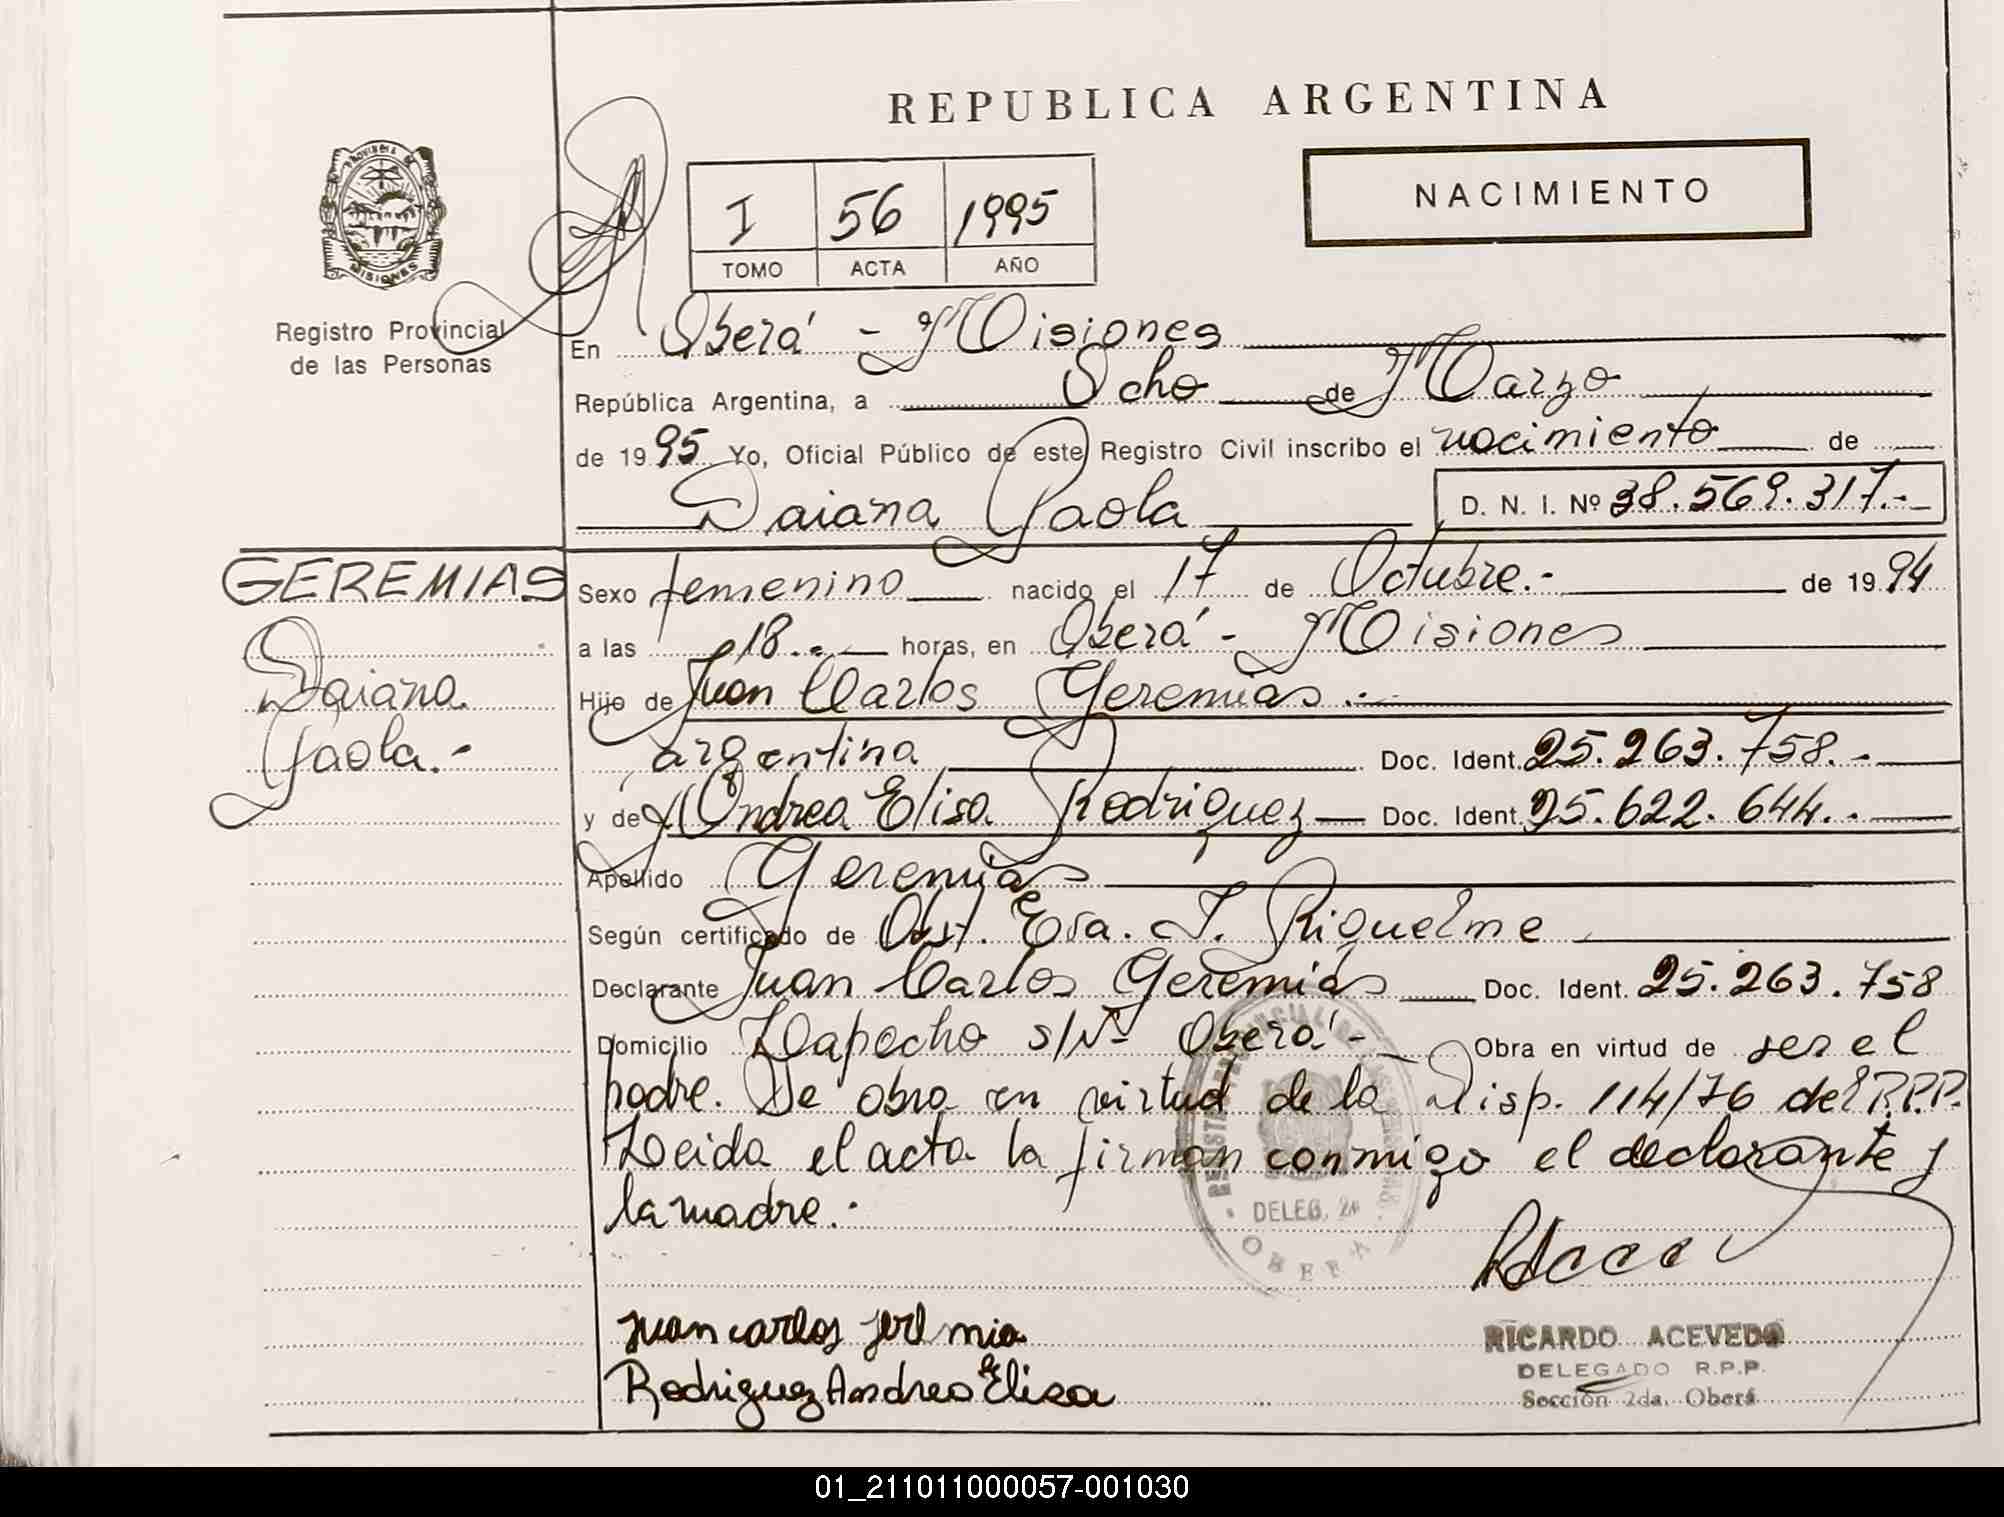 REPUBLICA ARGENTINA
NACIMIENTO
I 56 1995
TOMO ACTA AÑO
PROVINCIA DE
MISIONES
Registro Provincial
de las Personas
En Oberá - Misiones
República Argentina, a Ocho de Marzo
de 1995 Yo, Oficial Público de este Registro Civil inscribo el nacimiento de
Daiana Paola D. N. I. Nº 38.569.317.-
GEREMIAS
Daiana
Paola.-
Sexo femenino nacido el 17 de Octubre.- de 1994
a las 18.- horas, en Oberá - Misiones
Hijo de Juan Carlos Geremias.-
argentina Doc. Ident. 25.263.758.-
y de Andrea Elisa Rodriguez Doc. Ident. 25.622.644.-
Apellido Geremias
Según certificado de Obst. Esa. J. Riquelme
Declarante Juan Carlos Geremias Doc. Ident. 25.263.758
Domicilio Lapacho s/Nº Oberá - Obra en virtud de ser el
padre. Se obra en virtud de la Disp. 114/76 del R.P.P.
Leida el acta la firman conmigo el declarante y
la madre.-
DELEG. 2a
OBERA
juan carlos jeremia
Rodriguez Andrea Elisa
RICARDO ACEVEDO
DELEGADO R.P.P.
Sección 2da. Oberá
01_211011000057-001030